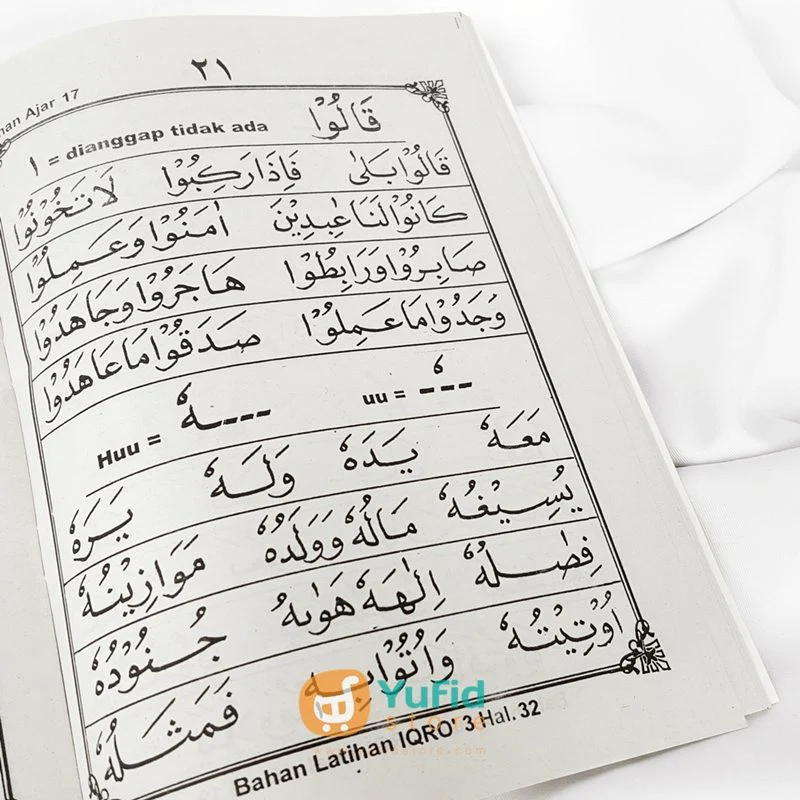 ٢١
an Ajar 17
ا = dianggap tidak ada قَالُوْا
قَالُوْابَلٰى فَاِذَارَكِبُوْا لَاتَخُوْنُوْا
كَانُوْالَنَاعٰبِدِيْنَ اٰمَنُوْاوَعَمِلُوْا
صَابِرُوْاوَرَابِطُوْا هَاجَرُوْاوَجَاهَدُوْا
وَجَدُوْامَاعَمِلُوْا صَدَقُوْامَاعَاهَدُوْا
Huu = ـهٗ uu =
مَعَهٗ يَدَهٗ وَلَهٗ يَرَهٗ
يُسِيْغُهٗ مَالُهٗ وَوَلَدُهٗ مَوَازِيْنُهٗ
فِصٰلُهٗ اِلٰهَهٗ هَوٰىهُ جُنُوْدُهٗ
اُوْتِيْتُهٗ وَاُتُوْابِهٖ فَمَثَلُهٗ
Yufid
store
Bahan Latihan IQRO' 3 Hal. 32